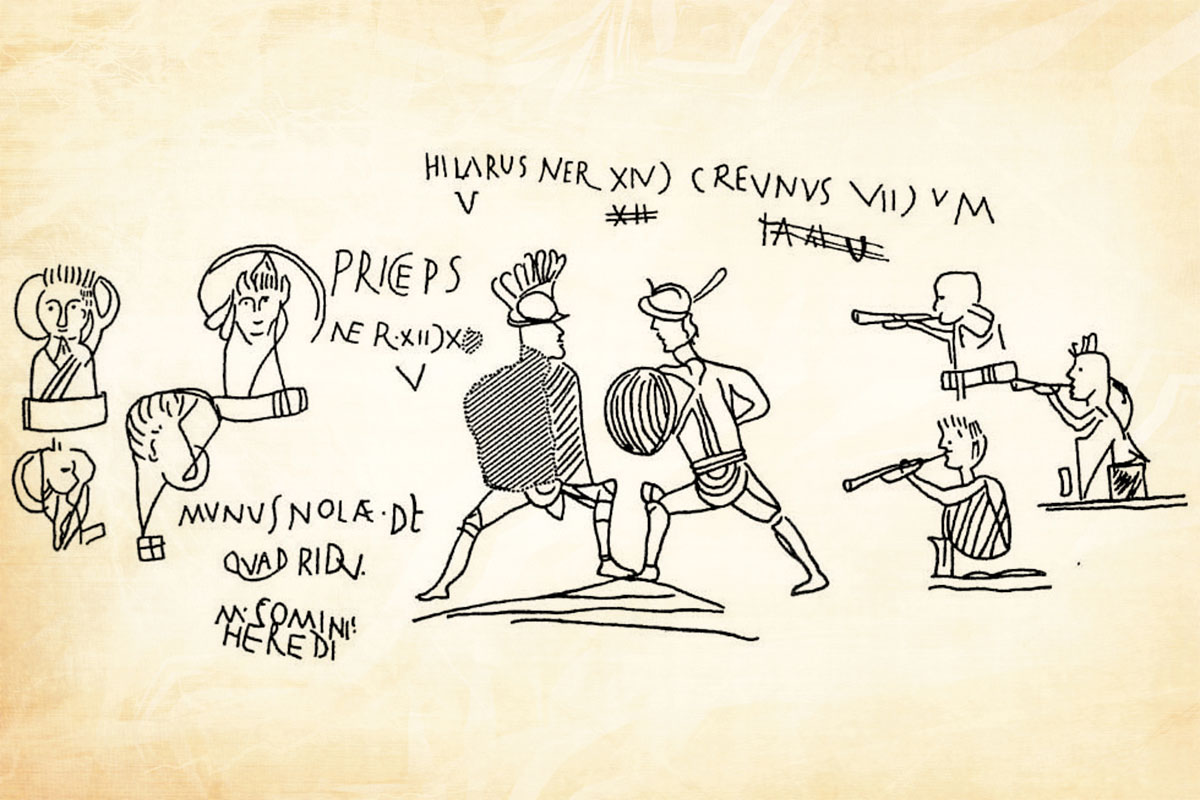 HILARUS NER XIV) CREVNVS VII) V M
V XII
PRICEPS
NE R·XII)X
V
MVNUS NOLÆ·DE
QVADRIDV.
M·COMINI
HEREDI